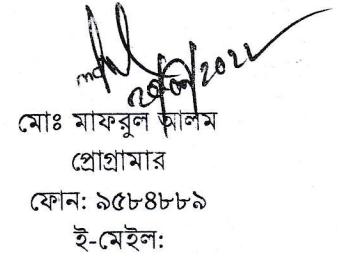 মোঃ মাফরুল আলম
প্রোগ্রামার
ফোন: ৯৫৮৪৮৮৯
ই-মেইল: